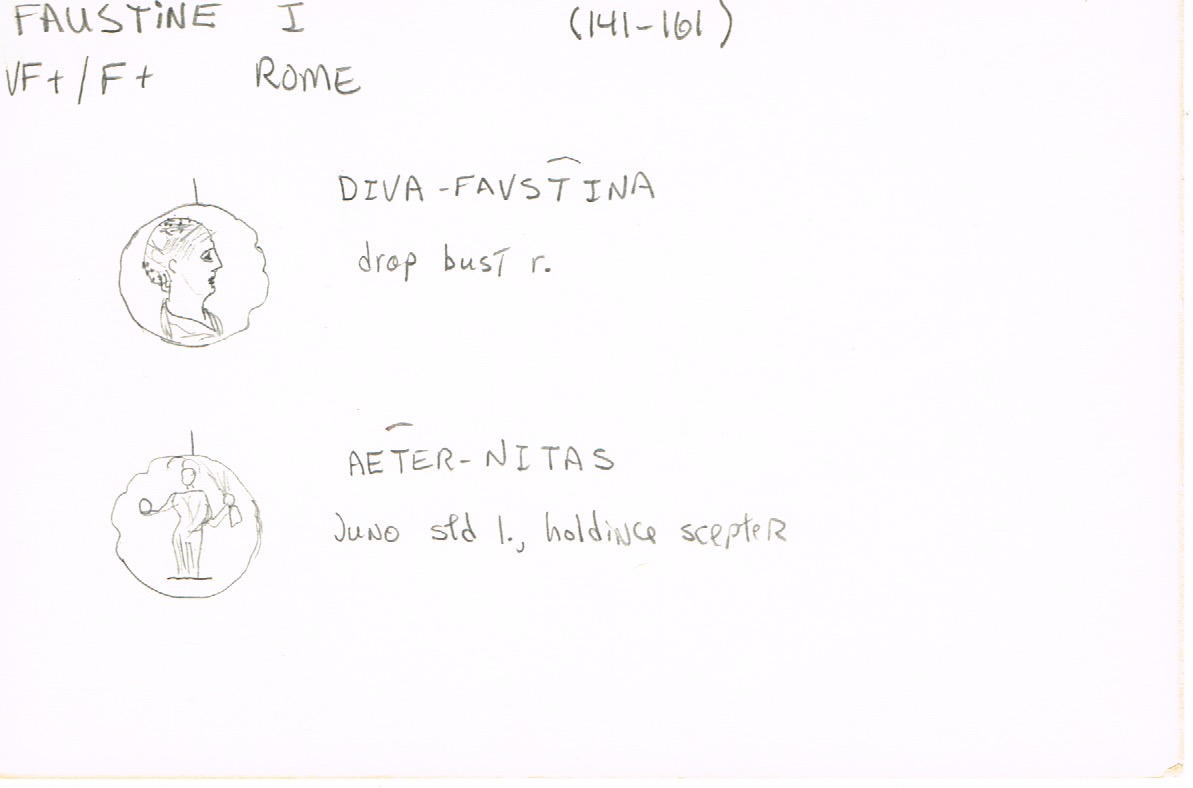 FAUSTINE I (141-161)
VF+/F+ ROME
DIVA-FAVSTINA
drop bust r.
AETER-NITAS
Juno std l., holding scepter